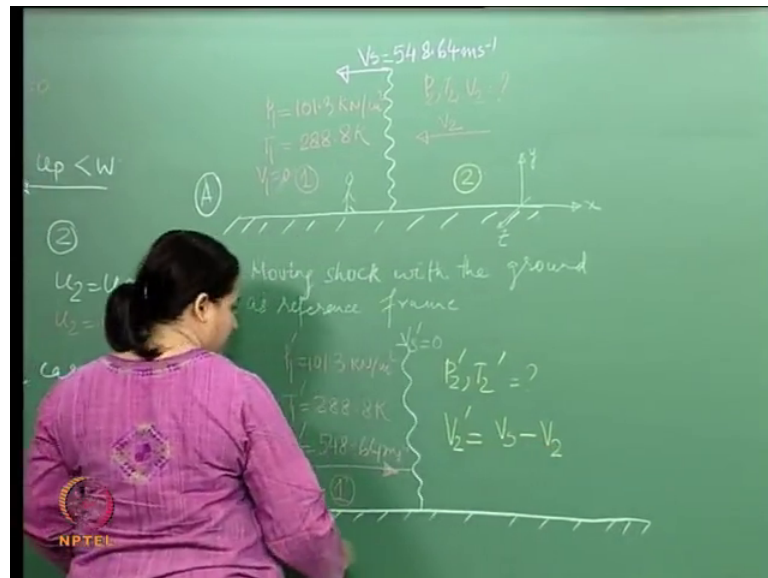 up < W
②
u₂ = u
u₂ =
Vs = 548.64 ms⁻¹
P₁ = 101.3 KN/m²
T₁ = 288.8 K
V₁ = 0 ①
P₂, T₂, V₂ = ?
V₂
②
y
x
z
A
Moving shock with the ground
as reference frame
Vs' = 0
P₁' = 101.3 KN/m²
T₁' = 288.8 K
= 548.64 ms⁻¹
①
P₂', T₂' = ?
V₂' = Vs − V₂
NPTEL